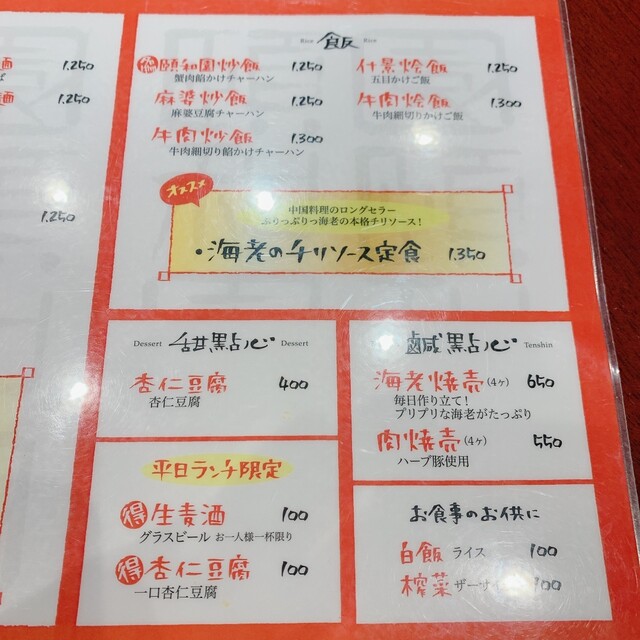 麺 1.250
麺 1.250
1.250
Rice 飯 Rice
頤和園炒飯 1.250
蟹肉餡かけチャーハン
麻婆炒飯 1.250
麻婆豆腐チャーハン
牛肉炒飯 1.300
牛肉細切り餡かけチャーハン
什景烩飯 1.250
五目かけご飯
牛肉烩飯 1.300
牛肉細切りかけご飯
オススメ
中国料理のロングセラー
ぷりっぷりっ海老の本格チリソース！
・海老のチリソース定食 1.350
Dessert 甜點心 Dessert
杏仁豆腐 400
杏仁豆腐
平日ランチ限定
得 生麦酒 100
グラスビール お一人様一杯限り
得 杏仁豆腐 100
一口杏仁豆腐
鹹點心 Tenshin
海老焼売(4ヶ) 650
毎日作り立て！
プリプリな海老がたっぷり
肉焼売(4ヶ) 550
ハーブ豚使用
お食事のお供に
白飯 ライス 100
榨菜 ザーサイ 100